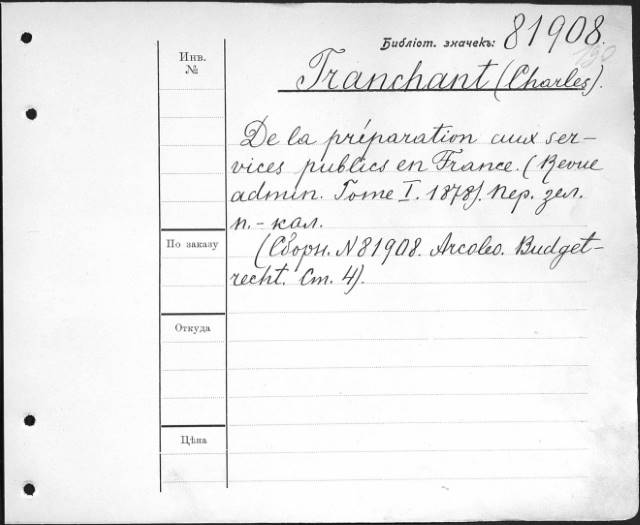 Библіот. значекъ: 81908.
Инв.
№
Tranchant (Charles).
De la préparation aux ser-
vices publics en France. (Revue
admin. Tome I. 1878). Пер. зел.
п.-кал.
По заказу
(Сборн. N 81908. Arcoleo. Budget-
recht. Ст. 4).
Откуда
Цѣна